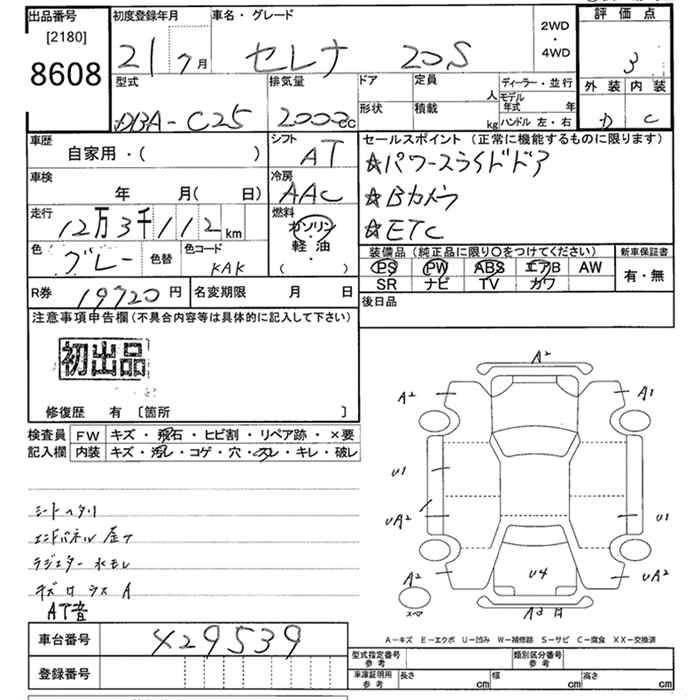 出品番号 初度登録年月 車名・グレード 評価点
[2180] 8608 21 7月 セレナ 20S 2WD・4WD 3
外装 内装
D C
型式 排気量 ドア 定員 人 ディーラー・並行
DBA-C25 2000cc 形状 積載 kg モデル年式 年
ハンドル 左・右
車歴 シフト セールスポイント (正常に機能するものに限ります)
自家用・( ) AT ☆パワースライドドア
車検 年 月( 日) 冷房 AAC ☆Bカメラ
走行 12万3千112km 燃料 ガソリン・軽油 ( ) ☆ETC
色 グレー 色替 色コード KAK
装備品 (純正品に限り○をつけてください) 新車保証書
PS PW ABS エアB AW 有・無
SR ナビ TV カワ
R券 19720円 名変期限 月 日 後日品
注意事項申告欄 (不具合内容等は具体的に記入して下さい)
初出品
修復歴 有 〔箇所 〕
検査員記入欄 FW キズ・飛石・ヒビ割・リペア跡・×要
内装 キズ・汚レ・コゲ・穴・スレ・キレ・破レ
シートヘタリ
エンドパネル 歪ナ
ラジエター 水モレ
AT音
A2
A2 A1
U1
UA2 U1
A2 U4 UA2
スペア A3
A-キズ E-エクボ U-凹み W-補修跡 S-サビ C-腐食 XX-交換済
車台番号 429539
登録番号
型式指定番号 参考 類別区分番号 参考
車庫証明用 参考 長さ cm 幅 cm 高さ cm